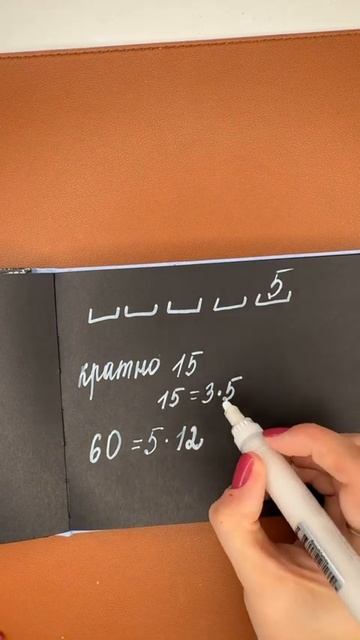 5
кратно 15
15 = 3 · 5
60 = 5 · 12